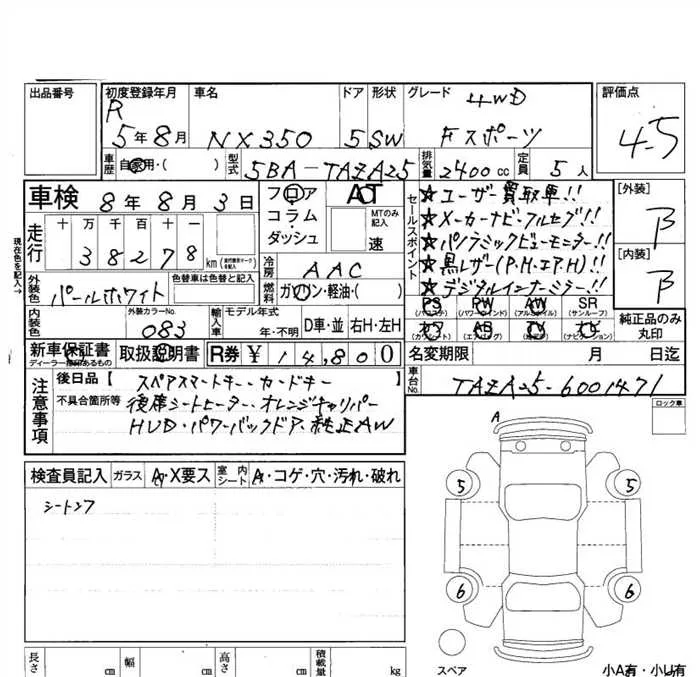 出品番号
初度登録年月
車名
ドア 形状
グレード 4WD
評価点
R
5年8月
NX350
5 SW
Fスポーツ
4.5
車歴 自家用・( )
型式 5BA-TAZA25
排気量 2400cc
定員 5人
車検 8年8月3日
フロア
コラム
ダッシュ
AT
MTのみ記入
速
セールスポイント
☆ユーザー買取車!!
☆メーカーナビ・フルセグ!!
☆パノラミックビューモニター!!
☆黒レザー(P.H.エアH)!!
☆デジタルインナーミラー!!
[外装]
B
[内装]
B
現在色を記入→
走行
十万千百十一
38278
km
冷房 AAC
燃料 ガソリン・軽油・( )
外装色 パールホワイト
色替車は色替と記入
内装色
外装カラーNo.
083
輸入車
モデル年式
年・不明
D車・並 右H・左H
PS (パワステ)
PW (パワーウインド)
AW (アルミホイル)
SR (サンルーフ)
カワ (カワシート)
AB (エアバッグ)
TV
ナビ (ナビゲーション)
純正品のみ丸印
新車保証書
取扱説明書
R券 ¥ 14,800
名変期限 月 日迄
注意事項
後日品【スペアスマートキー・カードキー】
不具合箇所等 後席シートヒーター・オレンジキャリパー
HUD・パワーバックドア・純正AW
車台No. TAZA25-6001471
ロック車
検査員記入
ガラス
A・X要ス
室内シート
A・コゲ・穴・汚れ・破れ
シートスレ
A
5
5
6
6
スペア
小A有・小U有
長さ cm
幅 cm
高さ cm
積載量 kg